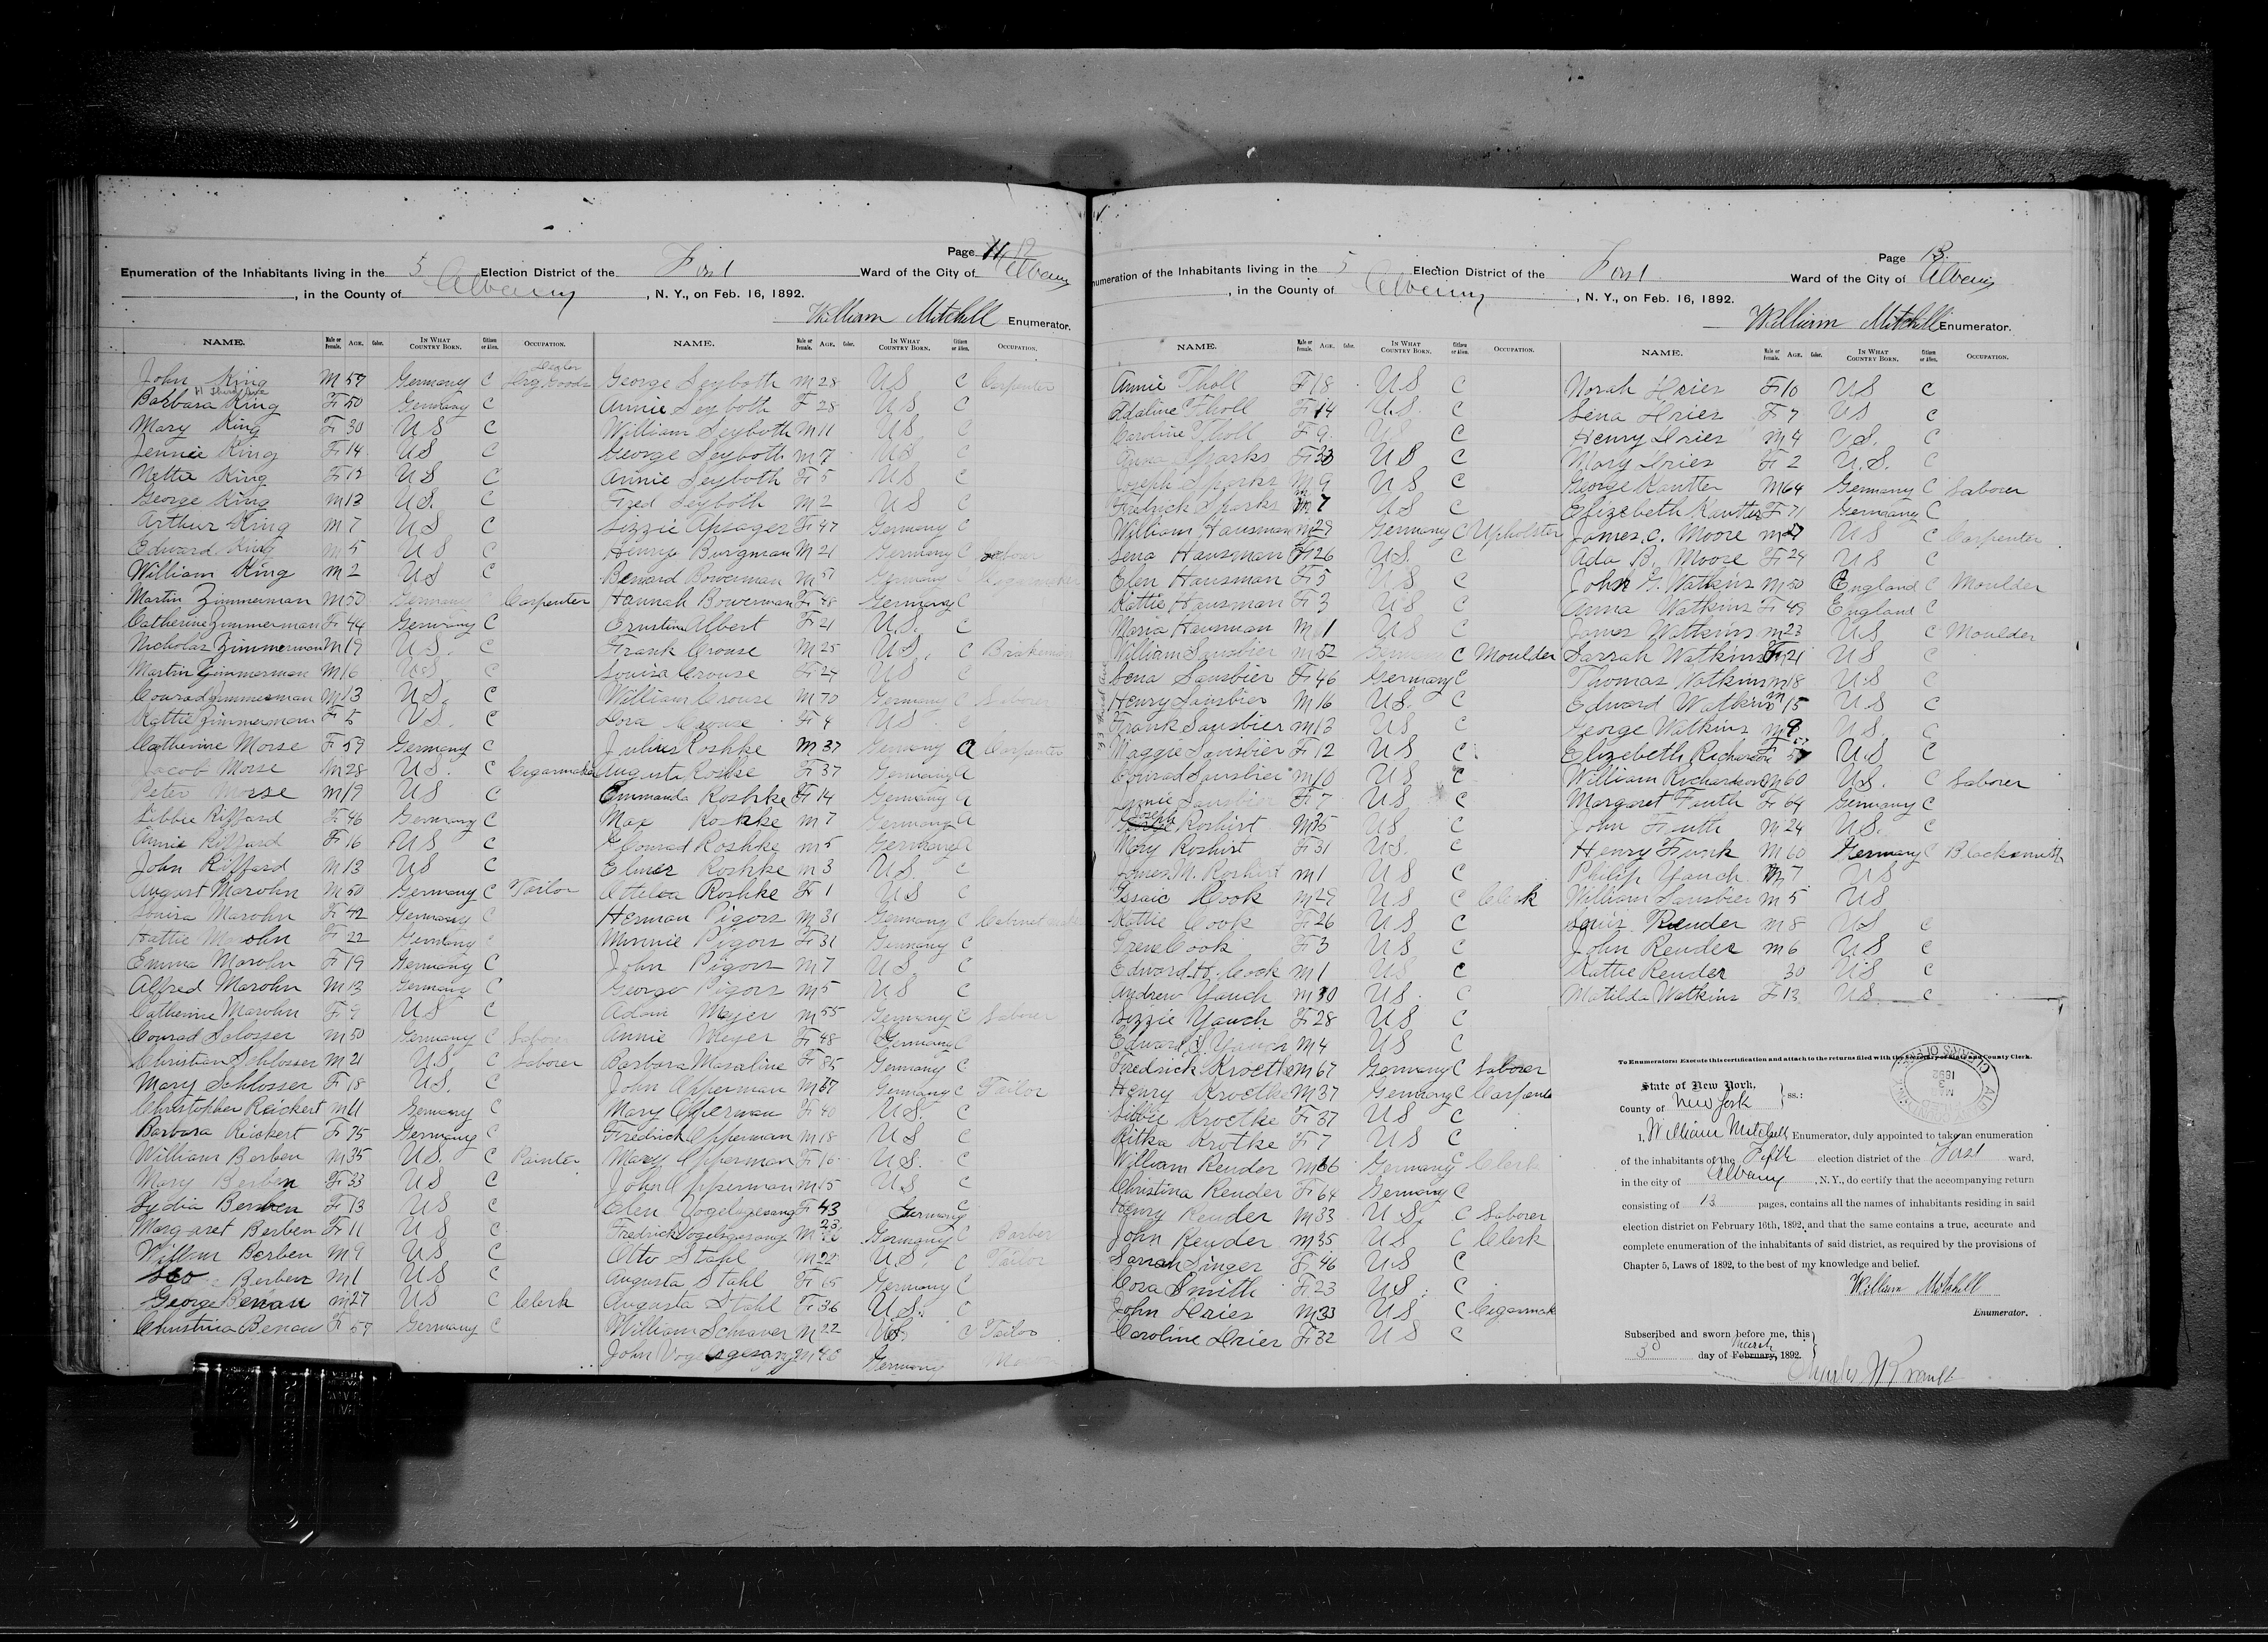 Page 12
Enumeration of the Inhabitants living in the 5 Election District of the First Ward of the City of Albany
, in the County of Albany, N. Y., on Feb. 16, 1892.
William Mitchell Enumerator.
NAME. Male or Female. AGE. Color. IN WHAT COUNTRY BORN. Citizen or Alien. OCCUPATION.
John King M 59 Germany C Dealer Dry Goods
Barbara King F 50 Germany C
Mary King F 30 US C
Jennie King F 14 US C
Netta King F 12 US C
George King M 13 US. C
Arthur King M 7 US C
Edward King M 5 US C
William King M 2 US C
Martin Zimmerman M 50 Germany Carpenter
Catherine Zimmerman F 44 Germany C
Nicholas Zimmerman M 19 US. C
Martin Zimmerman M 16 US C
Conrad Zimmerman M 13 US. C
Kattie Zimmerman F 5 US. C
Catherine Morse F 59 Germany C
Jacob Morse M 28 US. C Cigarmaker
Peter Morse M 19 US C
Libbie Rifford F 46 Germany C
Annie Rifford F 16 US C
John Rifford M 13 US C
August Marohn M 50 Germany C Tailor
Louisa Marohn F 42 Germany C
Hattie Marohn F 22 Germany
Emma Marohn F 19 Germany C
Alfred Marohn M 13 Germany C
Catherine Marohn F 9 US C
Conrad Schlosser M 50 Germany C Laborer
Christian Schlosser M 21 US C Laborer
Mary Schlosser F 18 US. C
Christopher Reickert M 41 Germany C
Barbara Rieckert F 75 Germany C
William Berben M 35 US. C Painter
Mary Berben F 33 US C
Lydia Berben F 13 US C
Margaret Berben F 11 US C
Wilbur Berben M 9 US C
Berben M 1 US C
George Benau M 27 US C Clerk
Christina Benau F 59 Germany C
NAME. Male or Female. AGE. Color. IN WHAT COUNTRY BORN. Citizen or Alien. OCCUPATION.
George Seyboth M 28 US C Carpenter
Annie Seyboth F 28 US C
William Seyboth M 11 US C
George Seyboth M 7 US C
Annie Seyboth F 5 US C
Fred Seyboth M 2 US C
Lizzie Apsager F 47 Germany C
Henry Burgman M 21 Germany C Laborer
Bernard Bowerman M 51 Germany Cigarmaker
Hannah Bowerman F 48 Germany C
Ernstina Albert F 21 U.S. C
Frank Crouse M 25 US. C Brakeman
Louisa Crouse F 27 US C
William Crouse M 70 Germany C Laborer
Dora Crouse F 4 US C
Julius Roshke M 37 Germany A Carpenter
Augusta Roshke F 37 Germany A
Emmanda Roshke F 14 Germany A
Max Roshke M 7 Germany A
Conrad Roshke M 5 Germany A
Elmer Roshke M 3 US. C
Ottelea Roshke F 1 US C
Herman Pigors M 31 Germany C Cabinet maker
Minnie Pigors F 31 Germany C
John Pigors M 7 US. C
George Pigors M 5 US C
Adam Meyer M 55 Germany C Laborer
Annie Meyer F 48 Germany C
Barbara Masaline F 85 Germany C
John Opperman M 67 Germany C Tailor
Mary Opperman F 40 US. C
Fredrick Opperman M 18 US C
Mary Opperman F 16 US. C
John Opperman M 15 US C
Elen Vogelgesang F 43 Germany C
Fredrick Vogelsgesang M 23 Germany C Barber
Otto Stahl M 22 US. C Tailor
Augusta Stahl F 65 Germany C
Augusta Stahl F 36 US. C
William Schraver M 22 US C Tailor
John Vogelsgesang M 48 Germany
Page 13.
Enumeration of the Inhabitants living in the 5 Election District of the First Ward of the City of Albany
, in the County of Albany, N. Y., on Feb. 16, 1892.
William Mitchell Enumerator.
NAME. Male or Female. AGE. Color. IN WHAT COUNTRY BORN. Citizen or Alien. OCCUPATION.
Annie Tholl F 18 US C
Adaline Tholl F 14 US. C
Caroline Tholl F 9 US C
Anna Sparks F 33 US C
Joseph Sparks M 9 US C
Fredrick Sparks M 7 US C
William Hausman M 29 Germany C Upholster
Lena Hausman F 26 US. C
Elen Hausman F 5 US C
Kattie Hausman F 3 US C
Maria Hausman M 1 US C
William Sausbier M 52 Germany C Moulder
Lena Sausbier F 46 Germany C
Henry Sausbier M 16 US. C
Frank Sausbier M 13 US C
Maggie Sausbier F 12 US C
Conrad Sausbier M 10 US C
Lizzie Sausbier F 7 US C
Joseph Roshirt M 35 US C
Mary Roshirt F 31 US. C
James M. Roshirt M 1 US C
Issaic Cook M 29 US C Clerk
Kattie Cook F 26 US C
Irene Cook F 3 US C
Edward H. Cook M 1 US C
Andrew Yauch M 30 US. C
Lizzie Yauch F 28 US C
Edward J. Yauch M 4 US C
Fredrick Kroetke M 67 Germany C Laborer
Henry Kroetke M 37 Germany C Carpenter
Libbie Kroetke F 37 US C
Ritka Krotke F 7 US C
William Render M 66 Germany C Clerk
Christina Render F 64 Germany C
Henry Render M 33 US. C Laborer
John Render M 35 US C Clerk
Sarrah Singer F 46 US C
Cora Smith F 23 US. C
John Dries M 33 US C Cigarmak
Caroline Dries F 32 US C
NAME. Male or Female. AGE. Color. IN WHAT COUNTRY BORN. Citizen or Alien. OCCUPATION.
Norah Dries F 10 US C
Lena Dries F 7 US C
Henry Dries M 4 US. C
Mary Dries F 2 U.S. C
George Kautter M 64 Germany C Laborer
Elizebeth Kautter F 71 Germany C
James. C. Moore M 27 US C Carpenter
Ada B. Moore F 24 US C
John G. Watkins M 50 England C Moulder
Anna Watkins F 49 England C
James Watkins M 23 US C Moulder
Sarrah Watkins F 21 US C
Thomas Watkins M 18 US C
Edward Watkins M 15 US C
George Watkins M 9 US. C
Elizebeth Richardson F 57 US C
William Richardson M 60 US. C Laborer
Margaret Fauth F 64 Germany C
John Fauth M 24 US. C
Henry Funk M 60 Germany C Blacksmith
Philip Yauch M 7 US
William Sausbier M 5 US
Louis Render M 8 US C
John Render M 6 US C
Kattie Render 30 US C
Matilda Watkins F 13 US C
To Enumerators: Execute this certification and attach to the returns filed with the Secretary of State and County Clerk.
State of New York,
County of New York } ss.:
I, William Mitchell Enumerator, duly appointed to take an enumeration
of the inhabitants of the Fifth election district of the First ward,
in the city of Albany, N. Y., do certify that the accompanying return
consisting of 13 pages, contains all the names of inhabitants residing in said
election district on February 16th, 1892, and that the same contains a true, accurate and
complete enumeration of the inhabitants of said district, as required by the provisions of
Chapter 5, Laws of 1892, to the best of my knowledge and belief.
William Mitchell
Enumerator.
Subscribed and sworn before me, this
3d day of February, March 1892.